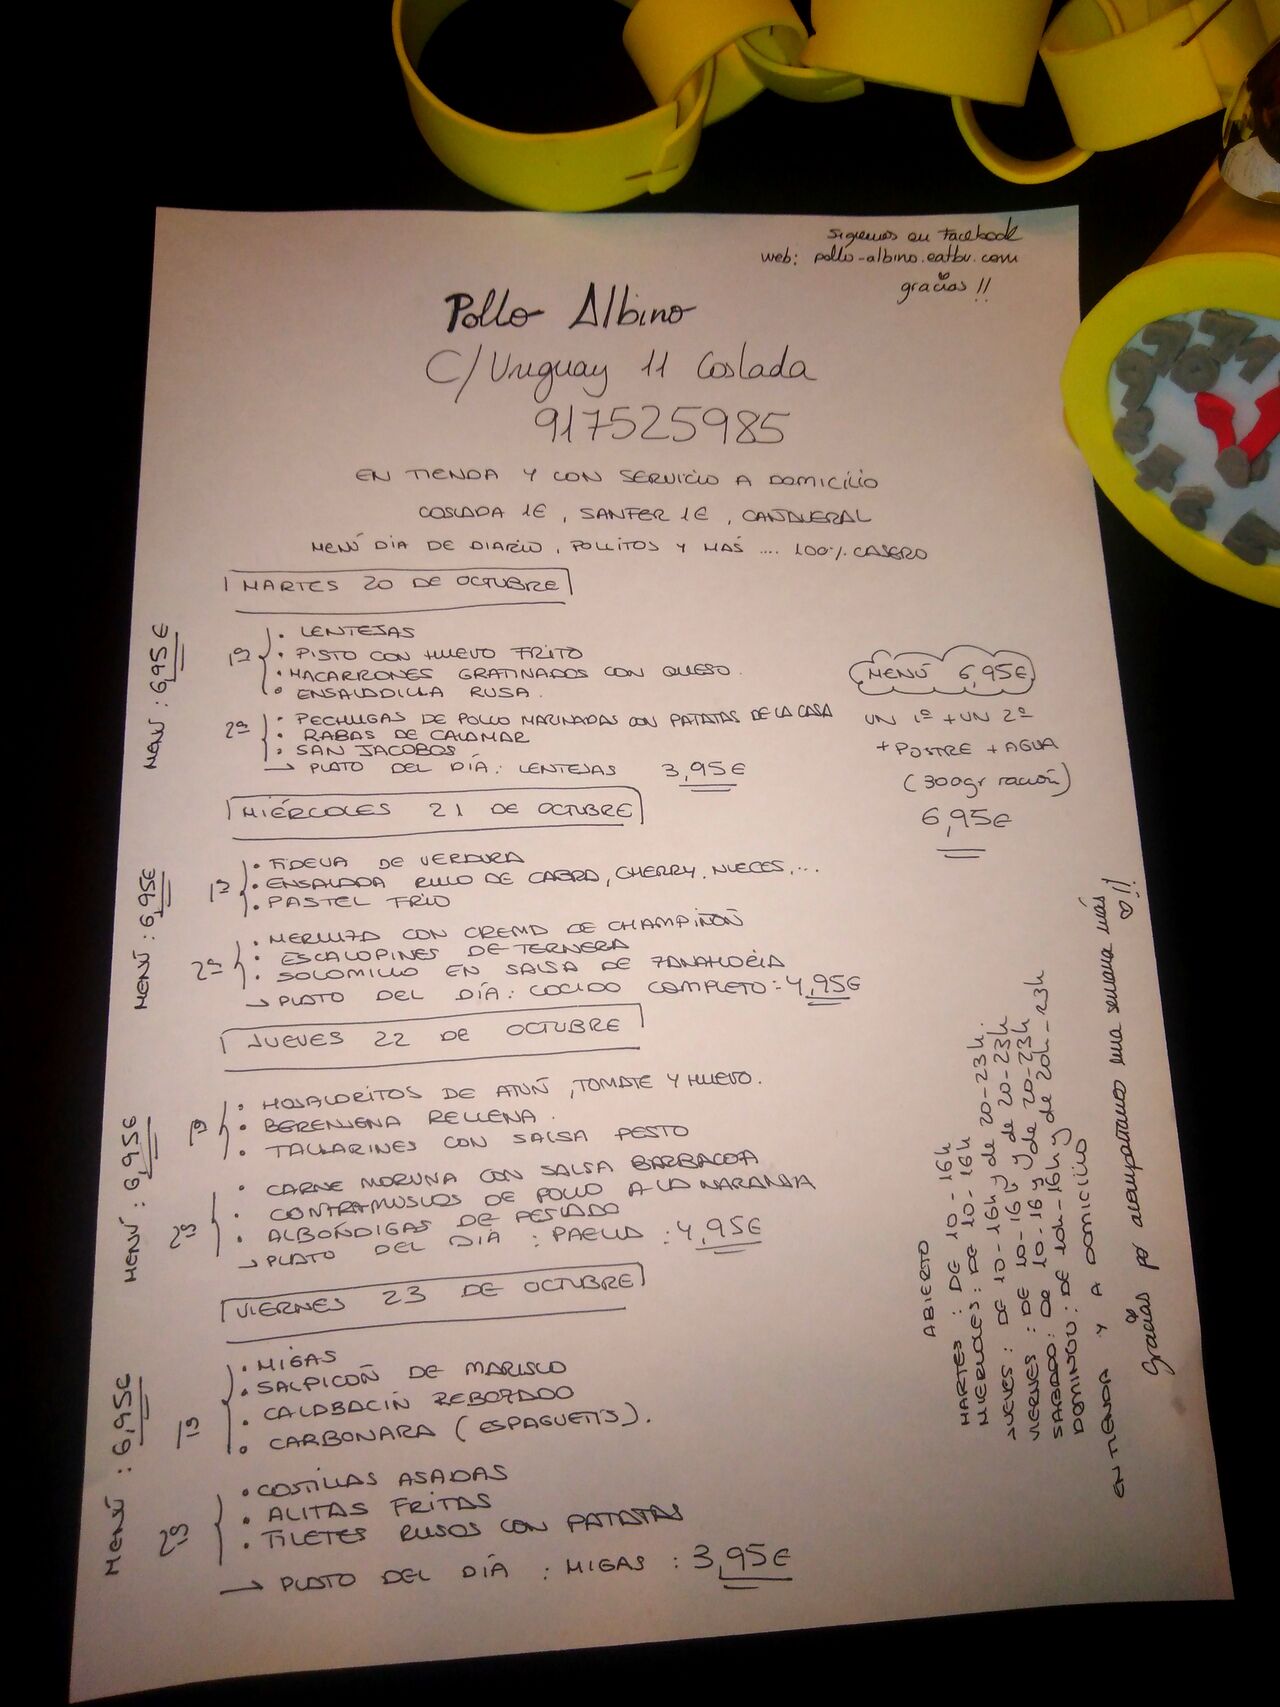 Siguenos en Facebook
web: pollo-albino.eatbu.com
gracias !!
Pollo Albino
C/ Uruguay 11 Coslada
917525985
EN TIENDA Y CON SERVICIO A DOMICILIO
COSLADA 1€, SANFER 1€, CAÑAVERAL
MENÚ DIA DE DIARIO, POLLITOS Y MAS .... 100% CASERO
MARTES 20 DE OCTUBRE
MENU: 6,95€
1º
• LENTEJAS
• PISTO CON HUEVO FRITO
• MACARRONES GRATINADOS CON QUESO.
• ENSALADILLA RUSA.
2º
• PECHUGAS DE POLLO MARINADAS CON PATATAS DE LA CASA
• RABAS DE CALAMAR
• SAN JACOBOS
→ PLATO DEL DÍA: LENTEJAS 3,95€
MENÚ 6,95€
UN 1º + UN 2º
+ POSTRE + AGUA
(300gr ración)
6,95€
MIÉRCOLES 21 DE OCTUBRE
MENÚ: 6,95€
1º
• FIDEUA DE VERDURA
• ENSALADA RULO DE CABRA, CHERRY, NUECES, ...
• PASTEL FRIO
2º
• MERLUZA CON CREMA DE CHAMPIÑÓN
• ESCALOPINES DE TERNERA
• SOLOMILLO EN SALSA DE ZANAHORIA
→ PLATO DEL DÍA: COCIDO COMPLETO: 4,95€
JUEVES 22 DE OCTUBRE
MENÚ: 6,95€
1º
• HOJALDRITOS DE ATÚN, TOMATE Y HUEVO.
• BERENJENA RELLENA.
• TALLARINES CON SALSA PESTO
2º
• CARNE MORUNA CON SALSA BARBACOA
• CONTRAMUSLOS DE POLLO A LA NARANJA
• ALBÓNDIGAS DE PESCADO
→ PLATO DEL DÍA: PAELLA: 4,95€
VIERNES 23 DE OCTUBRE
MENÚ: 6,95€
1º
• MIGAS
• SALPICÓN DE MARISCO
• CALABACÍN REBOZADO
• CARBONARA (ESPAGUETIS).
2º
• COSTILLAS ASADAS
• ALITAS FRITAS
• FILETES RUSOS CON PATATAS
→ PLATO DEL DÍA: MIGAS: 3,95€
ABIERTO
MARTES: DE 10-16h
MIERCOLES: DE 10-16h
JUEVES: DE 10-16h y de 20-23h.
VIERNES: DE 10-16h y de 20-23h
SABADO: DE 10-16 y de 20-23h
DOMINGO: DE 10h-16h y de 20h-23h
EN TIENDA Y A DOMICILIO
Gracias por acompañarnos una semana más ♡!!